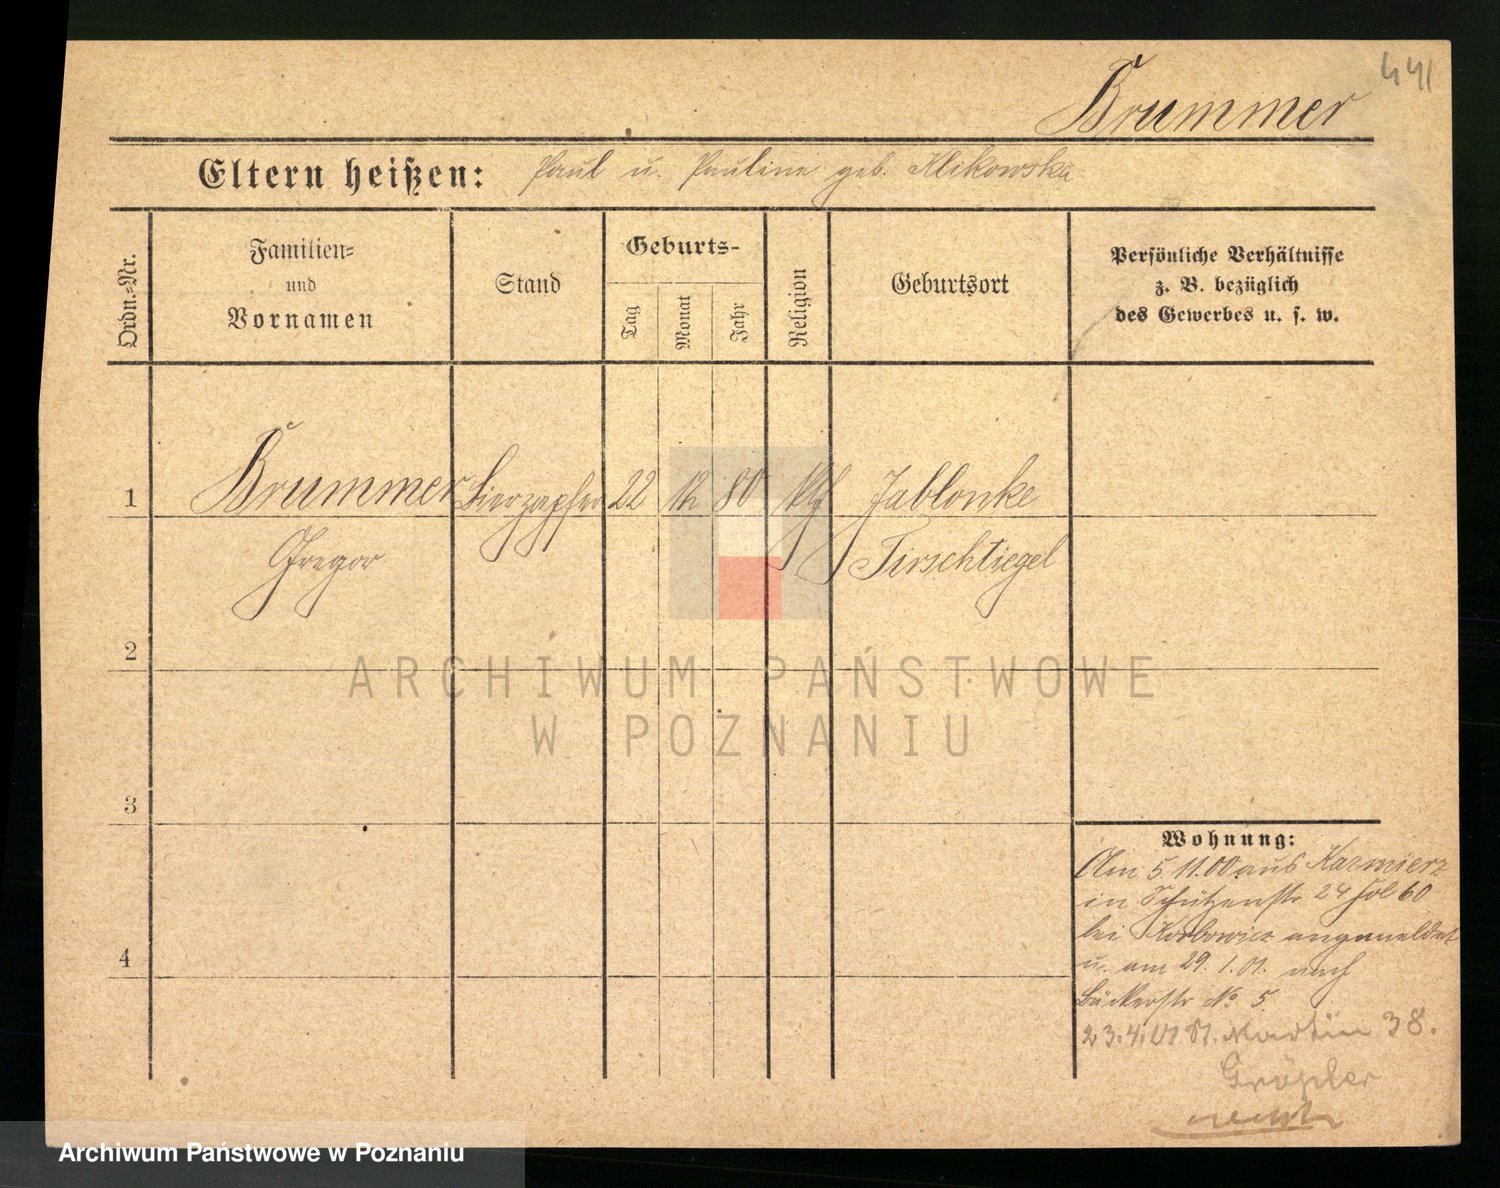 441
Brummer
Eltern heißen: Paul u. Pauline geb. Klikowska
Ordn.-Nr.
Familien-
und
Vornamen
Stand
Geburts-
Tag
Monat
Jahr
Religion
Geburtsort
Persönliche Verhältnisse
z. B. bezüglich
des Gewerbes u. s. w.
1
Brummer Bierzapfer 22 12 80 ktħ Jablonke
Gregor
Tirschtiegel
2
3
4
ARCHIWUM PAŃSTWOWE
W POZNANIU
Wohnung:
Am 5.11.00 aus Kazmierz
in Schützenstr 24 fol 60
bei Korbowicz angemeldet
u. am 29.1.01. nach
Bäckerstr No 5
23.4.01 St. Martin 38.
Gröpler
Archiwum Państwowe w Poznaniu